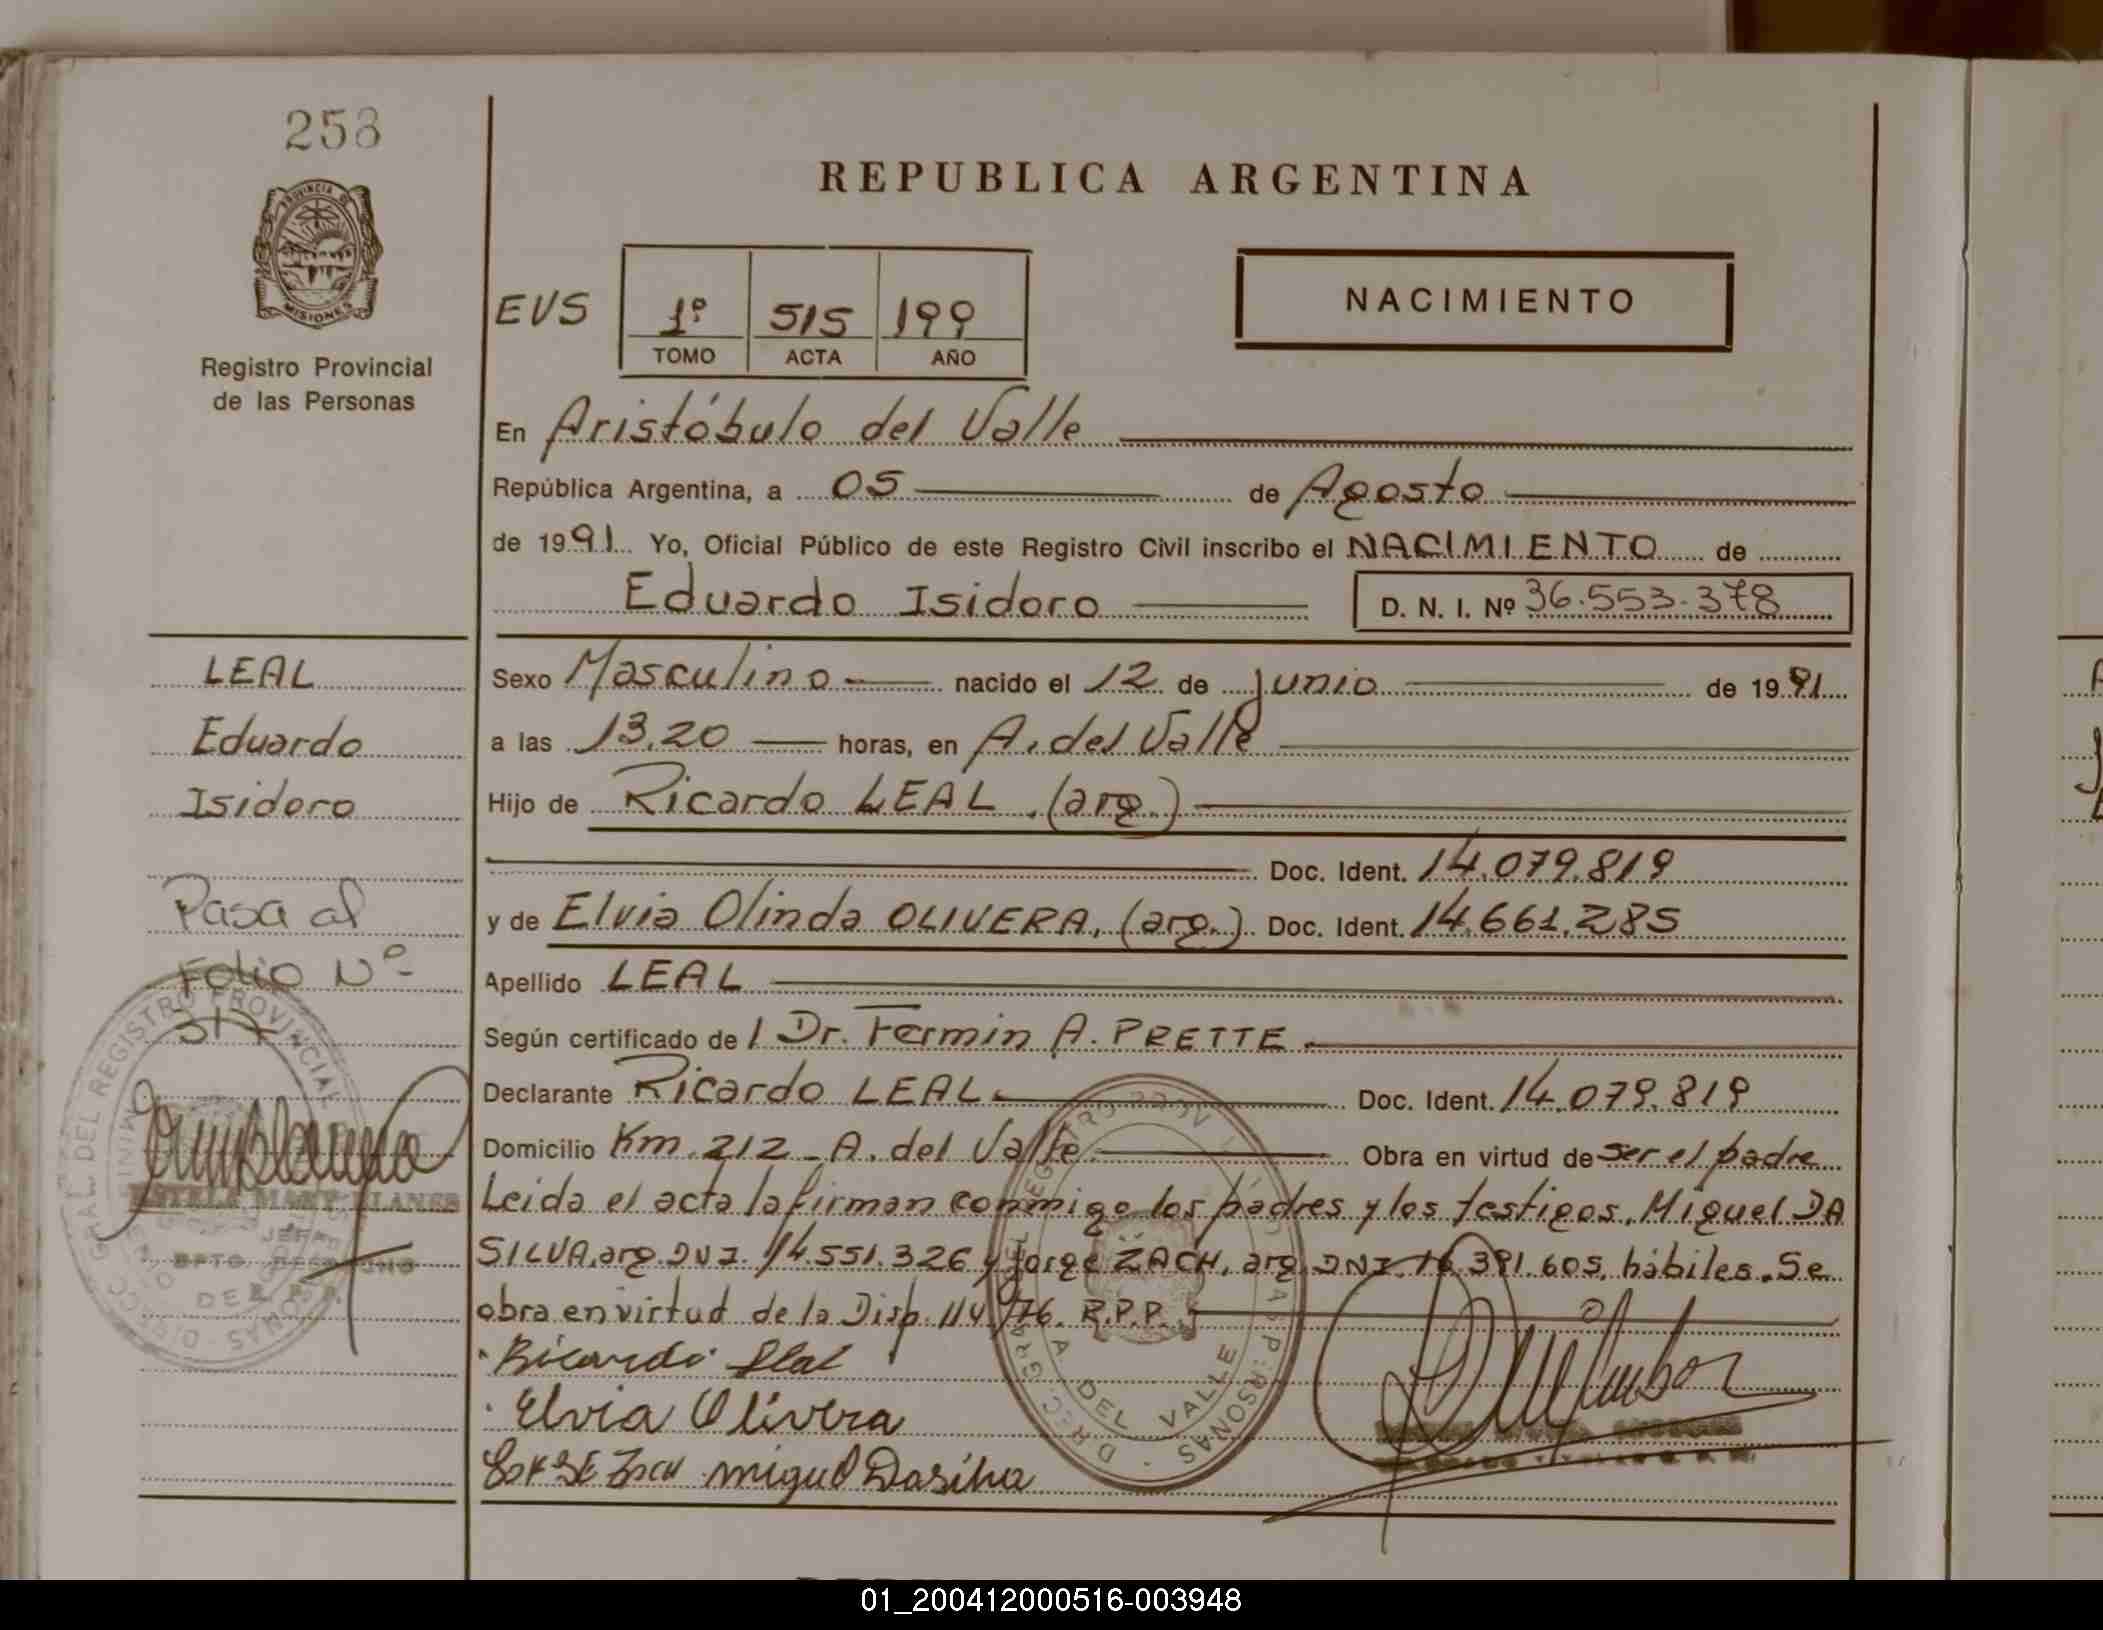 258
PROVINCIA DE
MISIONES
Registro Provincial
de las Personas
REPUBLICA ARGENTINA
EVS
1º 515 199
TOMO ACTA AÑO
NACIMIENTO
En Aristóbulo del Valle
República Argentina, a 05 de Agosto
de 1991 Yo, Oficial Público de este Registro Civil inscribo el NACIMIENTO de
Eduardo Isidoro D. N. I. Nº 36.553.378
LEAL
Eduardo
Isidoro
Pasa al
Folio Nº
317
Sexo Masculino nacido el 12 de junio de 1991
a las 13.20 horas, en A. del Valle
Hijo de Ricardo LEAL (arg.)
Doc. Ident. 14.079.819
y de Elvia Olinda OLIVERA, (arg.) Doc. Ident. 14.661.285
Apellido LEAL
Según certificado de l Dr. Fermin A. PRETTE.
Declarante Ricardo LEAL Doc. Ident. 14.079.819
Domicilio Km. 212 - A. del Valle Obra en virtud de ser el padre
Leida el acta la firman conmigo los padres y los testigos, Miguel DA
SILVA, arg. DNI. 14.551.326 y Jorge ZACH, arg. DNI. 16.391.605, hábiles. Se
obra en virtud de la Disp. 114/76. R.P.P.
Ricardo Leal
Elvia Olivera
JORGE Zach Miguel Dasilva
DIREC. GRAL. DEL REGISTRO PROVINCIAL
DE LAS PERSONAS
A. DEL VALLE
DIRECC. GRAL. DEL REGISTRO PROVINCIAL
PERSONAS
JEFE
01_200412000516-003948